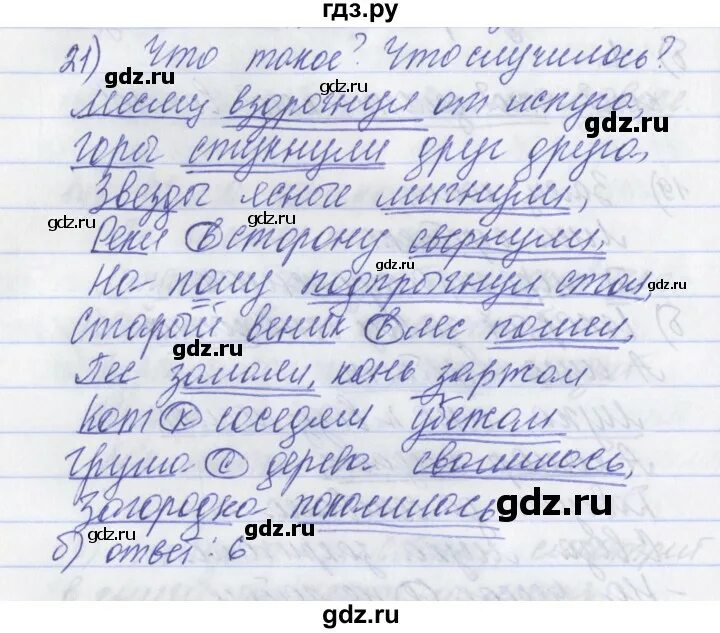 гдз.ру
21) Что такое? Что случилось?
gdz.ru
Месяц вздрогнул от испуга,
gdz.ru
gdz.ru
Горы стукнули друг друга,
Звезды ясные мигнули,
gdz.ru
gdz.ru
Реки в сторону свернули,
gdz.ru
На полу подпрыгнул стол,
gdz.ru
Старый веник в лес пошел,
gdz.ru
Пес залаял, конь заржал
Кот к соседям убежал
gdz.ru
Груша с дерева свалилась,
gdz.ru
Загородка покосилась
gdz.ru
gdz.ru
б) ответ: 6
gdz.ru